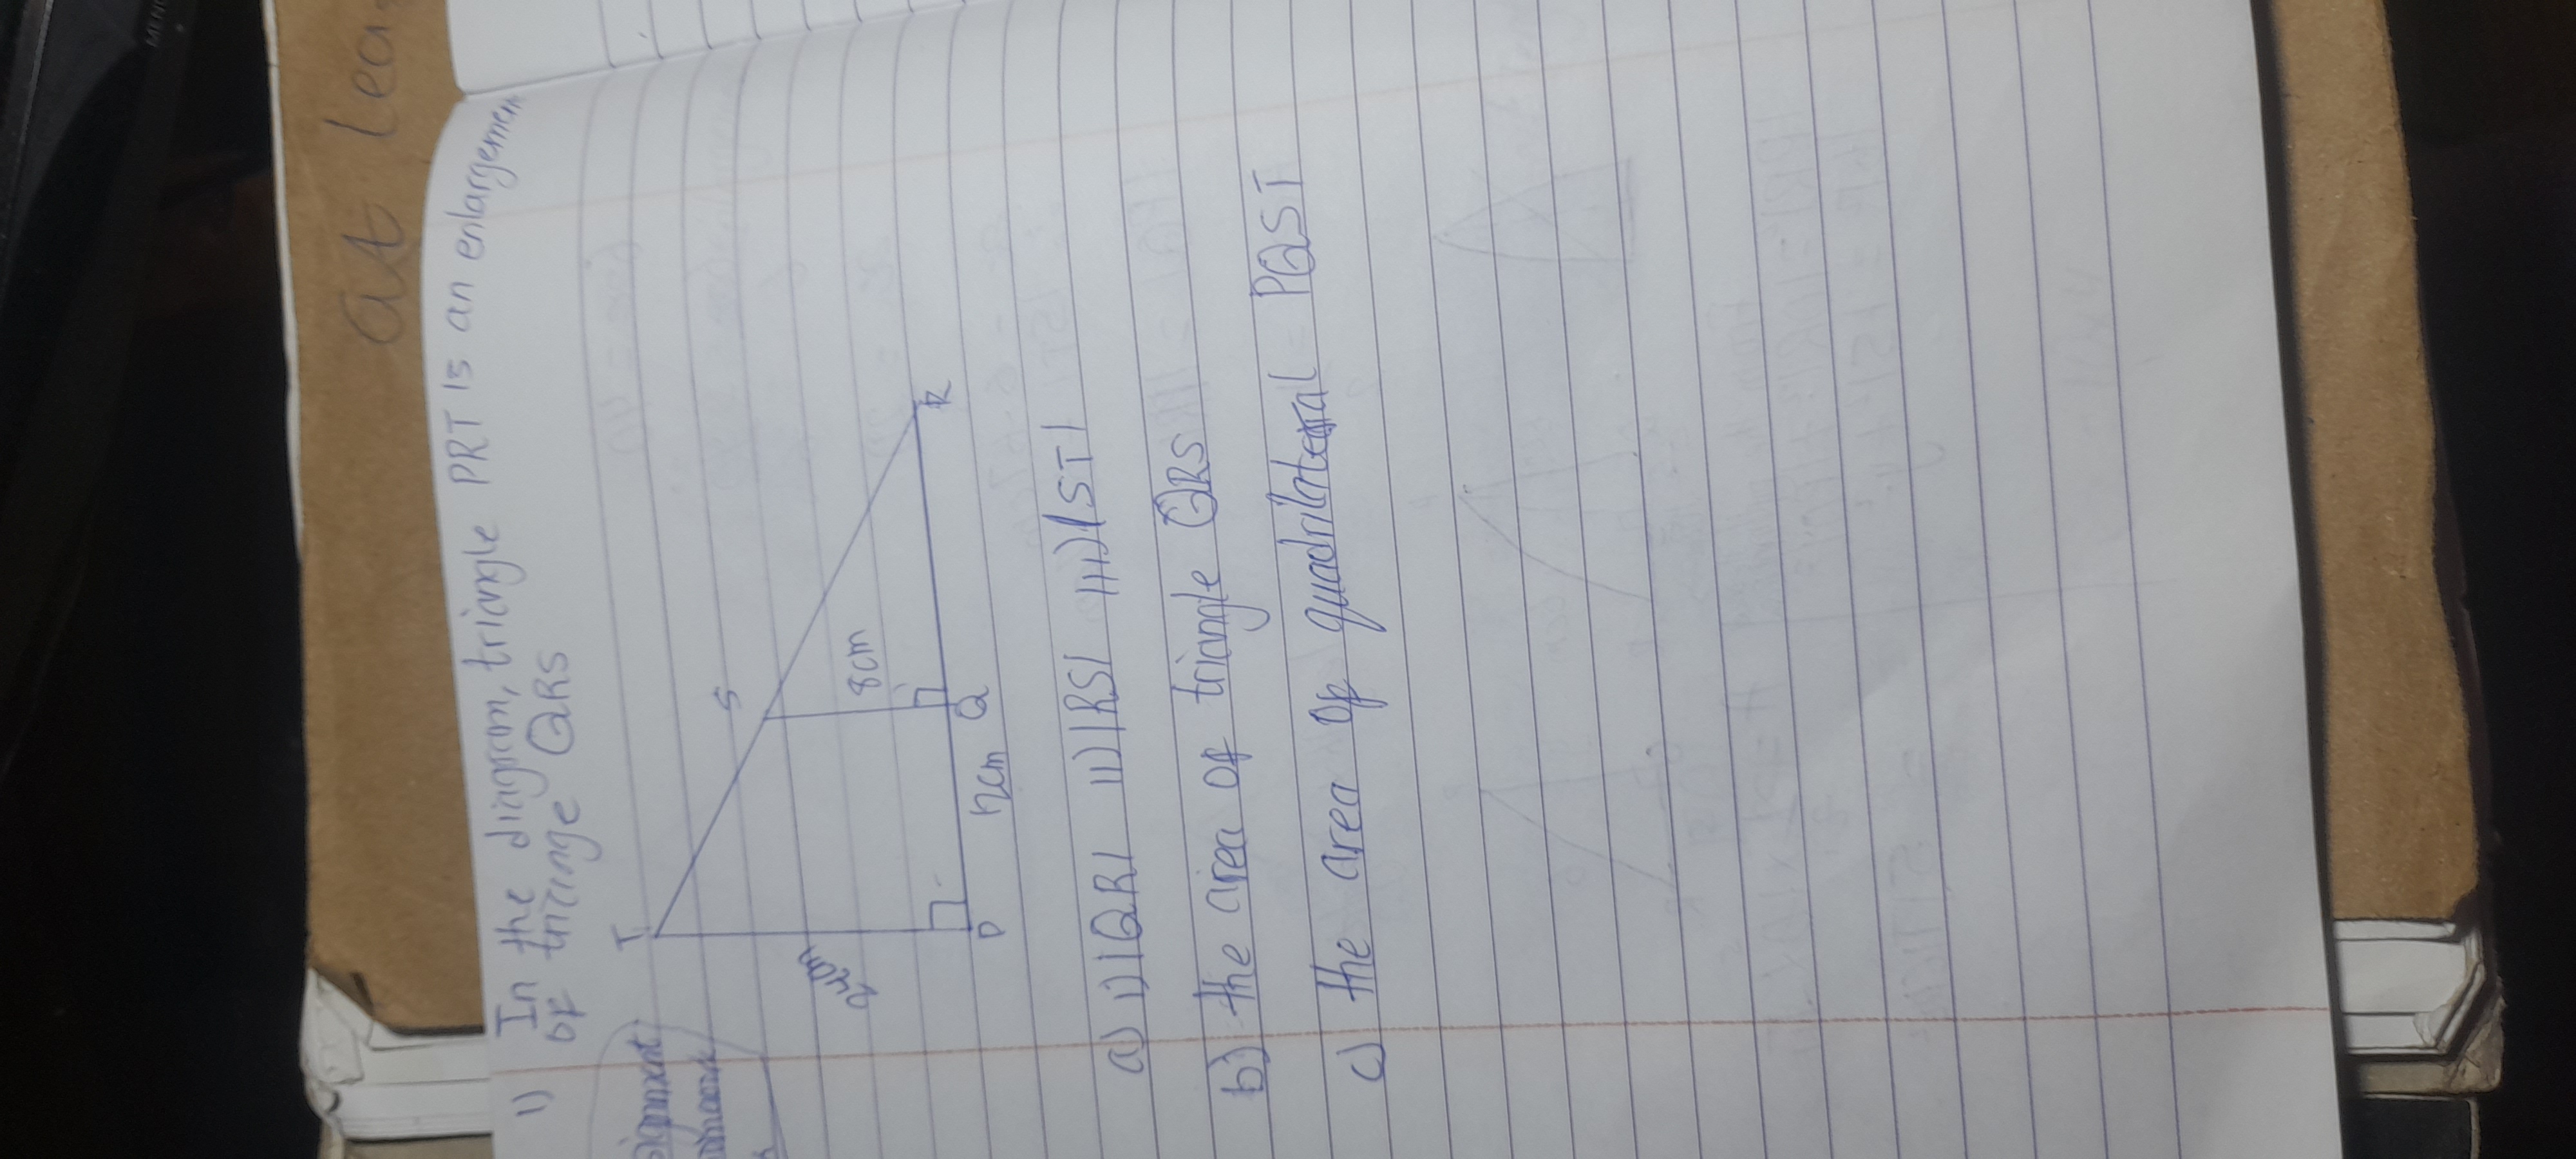 MENU
at lea
1) In the diagram, triangle PRT is an enlargemen
of triange QRS
signment
T
S
24cm
8cm
R
P 12cm Q
a) i) |QR| ii) |RS| iii) |ST|
b) the area of triangle QRS
c) the area of quadrilateral PQST